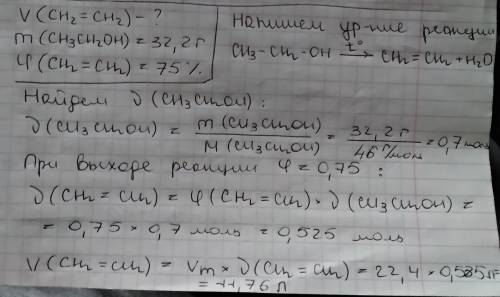 V(CH₂=CH₂) - ?
m(CH₃CH₂OH) = 32,2 г
φ(CH₂=CH₂) = 75%.
Напишем ур-ние реакции
CH₃-CH₂-OH t°→ CH₂=CH₂ + H₂O
Найдем ν(CH₃CH₂OH):
ν(CH₃CH₂OH) = m(CH₃CH₂OH) / M(CH₃CH₂OH) = 32,2 г / 46 г/моль = 0,7 моль
При выходе реакции φ = 0,75 :
ν(CH₂=CH₂) = φ(CH₂=CH₂) × ν(CH₃CH₂OH) =
= 0,75 × 0,7 моль = 0,525 моль
V(CH₂=CH₂) = Vm × ν(CH₂=CH₂) = 22,4 × 0,525
= 11,76 л